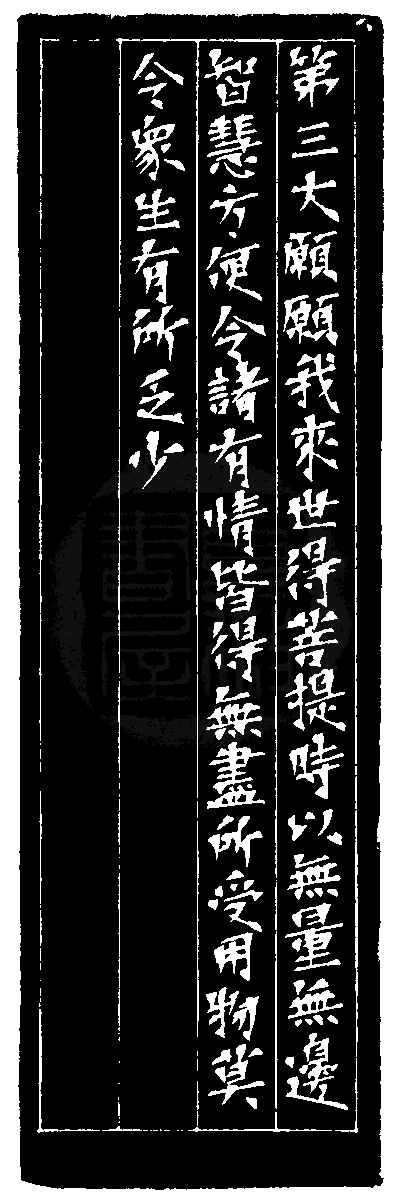 第三大願願我來世得菩提時以無量無邊
智慧方便令諸有情皆得無盡所受用物莫
令衆生有所乏少